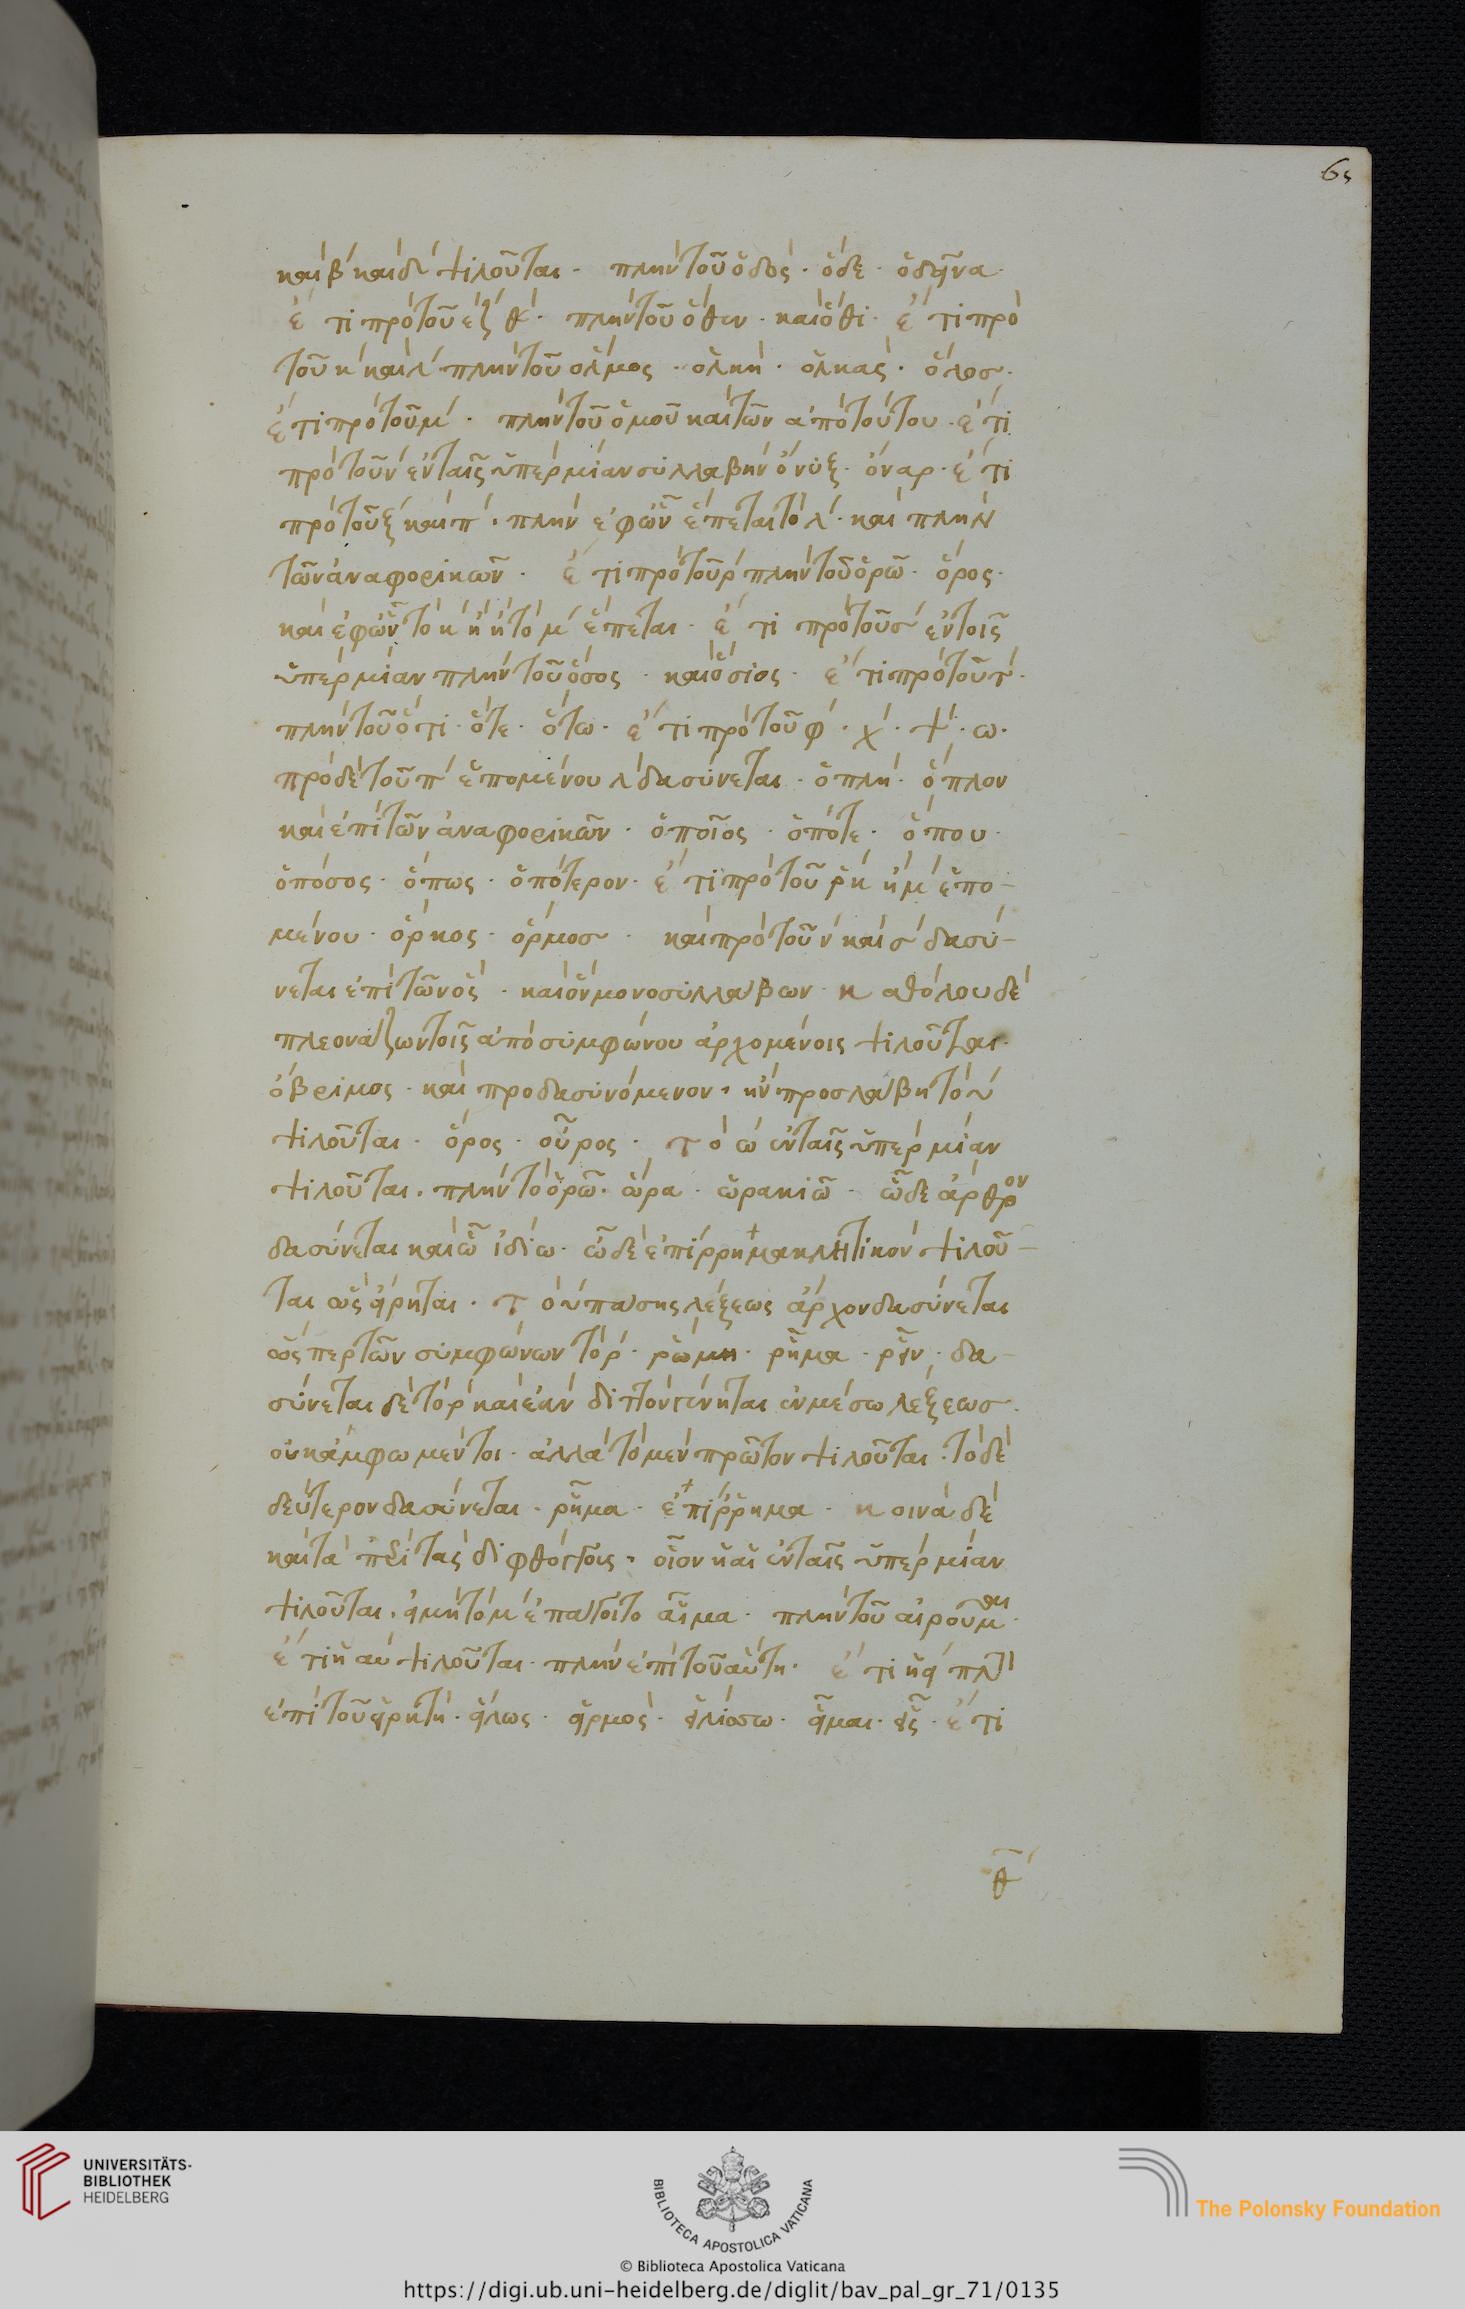 65
καὶ β΄ καὶ δ΄ ψιλοῦται· πλὴν τοῦ ὁδὸς· ὅδε· ὁδεῖνα·
ἔτι πρὸ τοῦ ε ζ θ΄· πλὴν τοῦ ὅθεν· καὶ ὅθι· ἔτι πρὸ
τοῦ κ΄ καὶ λ΄ πλὴν τοῦ ὅλμος· ὁλκὴ· ὁλκὰς· ὅλοσ·
ἔτι πρὸ τοῦ μ΄· πλὴν τοῦ ὁμοῦ καὶ τῶν ἀπὸ τούτου· ἔτι
πρὸ τοῦ ν΄ ἐν ταῖς ὑπὲρ μίαν συλλαβὴν ὄνυξ· ὄναρ· ἔτι
πρὸ τοῦ ξ΄ καὶ π΄· πλὴν ἐφ ὧν ἕπεται τὸ λ΄· καὶ πλὴν
τῶν ἀναφορικῶν· ἔτι πρὸ τοῦ ρ΄ πλὴν τοῦ ὁρῶ· ὅρος·
καὶ ἐφ ὧν τὸ κ΄ ἢ τὸ μ΄ ἕπεται· ἔτι πρὸ τοῦ σ΄ ἐν τοῖς
ὑπὲρ μίαν πλὴν τοῦ ὅσος· καὶ ὅσιος· ἔτι πρὸ τοῦ τ΄·
πλὴν τοῦ ὅτι· ὅτε· ὅτω· ἔτι πρὸ τοῦ φ΄· χ΄· ψ΄· ω·
πρὸ δὲ τοῦ π΄ ἑπομένου λ΄ δασύνεται· ὁπλὴ· ὅπλον
καὶ ἐπὶ τῶν ἀναφορικῶν· ὁποῖος· ὁπότε· ὅπου·
ὁπόσος· ὅπως· ὁπότερον· ἔτι πρὸ τοῦ ρ κ΄ ἢ μ΄ ἑπο-
μένου· ὅρκος· ὅρμοσ· καὶ πρὸ τοῦ ν΄ καὶ σ΄ δασύ-
νεται ἐπὶ τῶν ὃς· καὶ ὃν μονοσυλλάβων· καθόλου δὲ
πλεονάζων τοῖς ἀπὸ συμφώνου ἀρχομένοις ψιλοῦται·
ὄβριμος· καὶ προδασυνόμενον· ἢν προσλάβη τὸ υ
ψιλοῦται· ὅρος· οὖρος· τὸ ω ἐν ταῖς ὑπὲρ μίαν
ψιλοῦται· πλὴν τὸ ὁρῶ· ὥρα· ὡρακιῶ· ὧδε ἄρθρον
δασύνεται καὶ ὧ ἰδίω· ὦ δὲ ἐπίρρημα κλητικὸν ψιλοῦ-
ται ὡς εἴρηται· τὸ υ πάσης λέξεως ἄρχον δασύνεται
ὥσπερ τῶν συμφώνων τὸ ρ· ῥώμη· ῥῆμα· ῥεῖν· δα-
σύνεται δὲ τὸ ρ΄ καὶ ἐὰν διττὸν γένηται ἐν μέσω λέξεωσ·
οὐκ ἄμφω μέντοι· ἀλλὰ τὸ μὲν πρῶτον ψιλοῦται· τὸ δὲ
δεύτερον δασύνεται· ῥῆμα· ἐπίῤῥημα· κοινὰ δὲ
καὶ τὰ περὶ τὰς διφθόγγους· οἷον ἡ αι ἐν ταῖς ὑπὲρ μίαν
ψιλοῦται· εἰ μὴ τὸ μ΄ ἐπάγοιτο αἷμα· πλὴν τοῦ αἱροῦμαι·
ἔτι ἡ αυ ψιλοῦται· πλὴν ἐπὶ τοῦ αὕτη· ἔτι ἡ ει πλὴν
ἐπὶ τοῦ εἱρκτὴ· εἵλως· εἱρμὸς· εἱλίσσω· εἷμαι· εἷς· ἔτι
θ
UNIVERSITÄTS-
BIBLIOTHEK
HEIDELBERG
BIBLIOTECA APOSTOLICA VATICANA
The Polonsky Foundation
© Biblioteca Apostolica Vaticana
https://digi.ub.uni-heidelberg.de/diglit/bav_pal_gr_71/0135